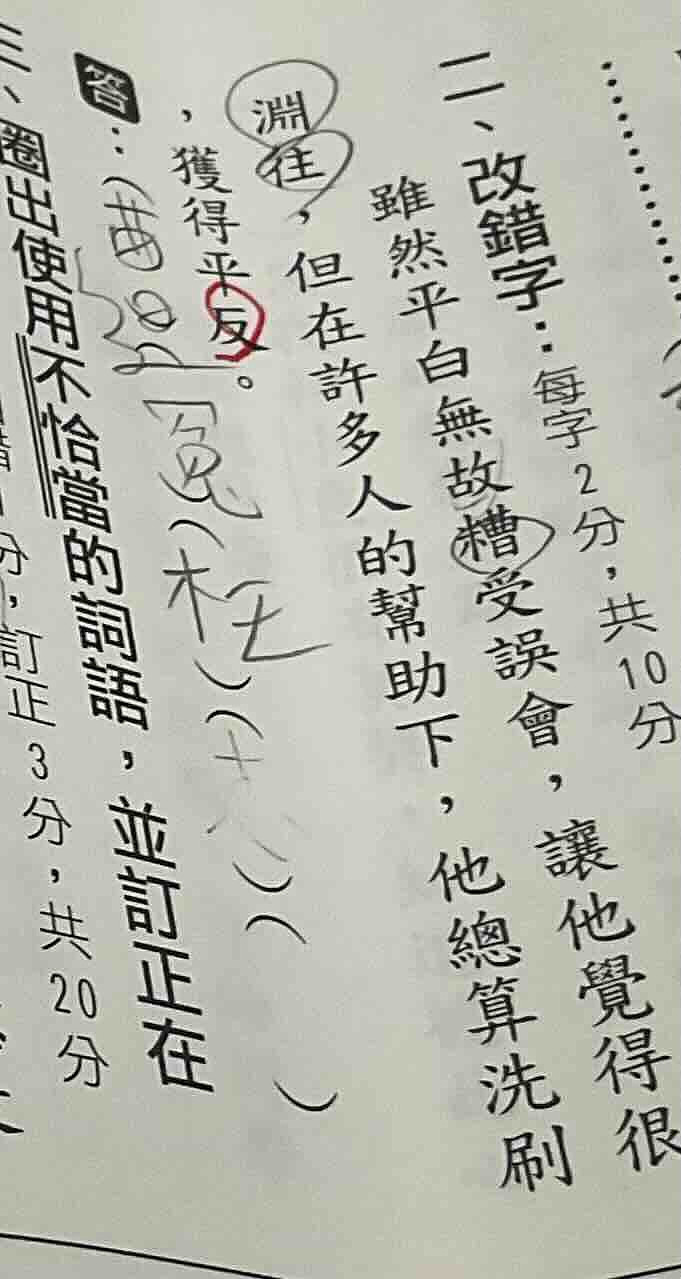 二、改錯字：每字2分，共10分
雖然平白無故糟受誤會，讓他覺得很
淵往，但在許多人的幫助下，他總算洗刷
，獲得平反。
答：（ ）（冤）（枉）（ ）（ ）
三、圈出使用不恰當的詞語，並訂正在
分，訂正3分，共20分